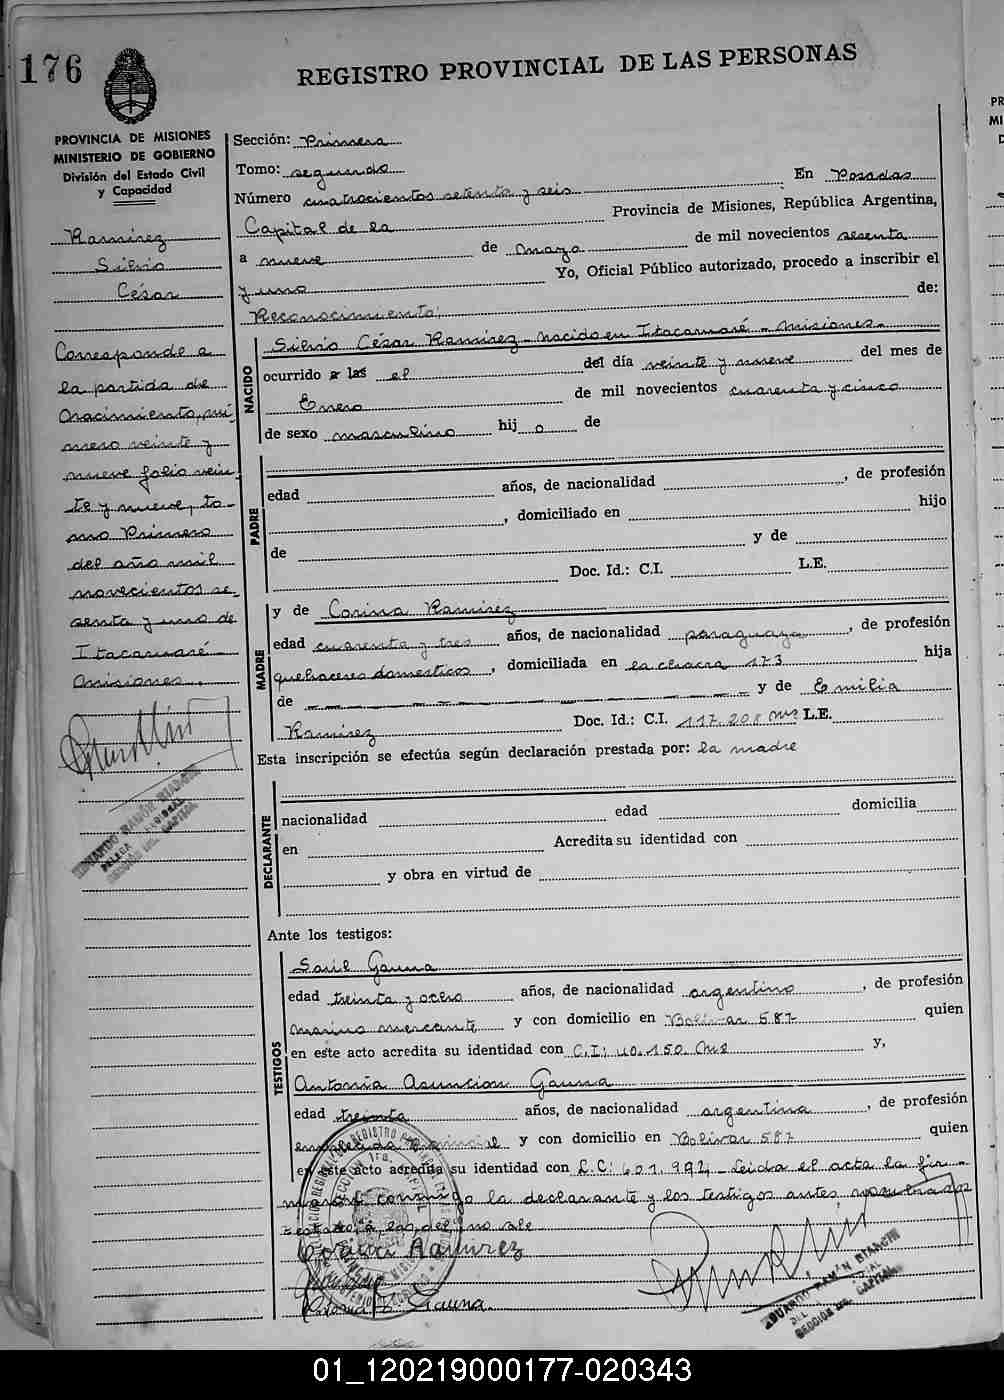 176
REGISTRO PROVINCIAL DE LAS PERSONAS
PROVINCIA DE MISIONES
MINISTERIO DE GOBIERNO
División del Estado Civil
y Capacidad
Ramírez
Silvio
César
Corresponde a
la partida de
Nacimiento, nú-
mero veinte y
nueve folio vein-
te y nueve, to-
mo Primero
del año mil
novecientos se-
senta y uno de
Itacaruaré
Misiones.
EDUARDO RAMÓN BIANCHI
SECCIÓN 1ra. CAPITAL
Sección: Primera
Tomo: segundo
Número cuatrocientos setenta y seis En Posadas
Capital de la Provincia de Misiones, República Argentina,
a nueve de mayo de mil novecientos sesenta
y uno Yo, Oficial Público autorizado, procedo a inscribir el
Reconocimiento de:
NACIDO
Silvio César Ramírez - nacido en Itacaruaré - Misiones -
ocurrido a las el del día veinte y nueve del mes de
Enero de mil novecientos cuarenta y cinco
de sexo masculino hij o de
PADRE
edad años, de nacionalidad , de profesión
, domiciliado en hijo
de y de
Doc. Id.: C.I. L.E.
MADRE
y de Corina Ramírez
edad cuarenta y tres años, de nacionalidad paraguaya , de profesión
quehaceres domésticos , domiciliada en la chacra 173 hija
de y de Emilia
Ramírez Doc. Id.: C.I. 117.208 Mns L.E.
Esta inscripción se efectúa según declaración prestada por: la madre
DECLARANTE
nacionalidad edad domicilia
en Acredita su identidad con
y obra en virtud de
Ante los testigos:
TESTIGOS
Saúl Gauna
edad treinta y ocho años, de nacionalidad argentino , de profesión
marino mercante y con domicilio en Bolívar 587 quien
en este acto acredita su identidad con C.I: 40.150 Mns y,
Antonia Asunción Gauna
edad treinta años, de nacionalidad argentina , de profesión
empleada Provincial y con domicilio en Bolívar 587 quien
en este acto acredita su identidad con L.C: 601.992 - Leída el acta la fir-
man conmigo la declarante y los testigos antes nombrados
testado: a, las, del, no vale
Corina Ramirez
Antonia A. Gauna.
EDUARDO RAMÓN BIANCHI
SECCIÓN 1ra. CAPITAL
01_120219000177-020343